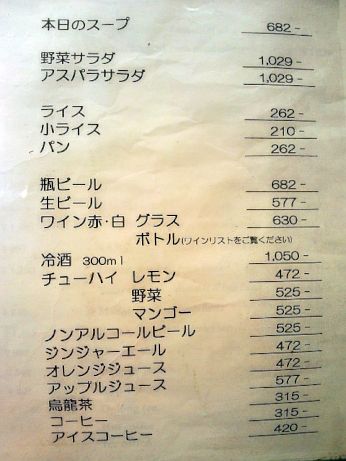 本日のスープ 682-
野菜サラダ 1,029-
アスパラサラダ 1,029-
ライス 262-
小ライス 210-
パン 262-
瓶ビール 682-
生ビール 577-
ワイン赤・白 グラス 630-
ボトル(ワインリストをご覧ください)
冷酒 300ml 1,050-
チューハイ レモン 472-
野菜 525-
マンゴー 525-
ノンアルコールビール 525-
ジンジャーエール 472-
オレンジジュース 472-
アップルジュース 577-
烏龍茶 315-
コーヒー 315-
アイスコーヒー 420-